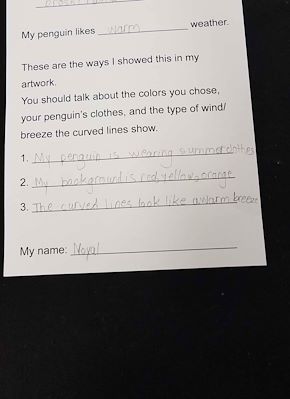 My penguin likes warm weather.
These are the ways I showed this in my
artwork.
You should talk about the colors you chose,
your penguin's clothes, and the type of wind/
breeze the curved lines show.
1. My penguin is wearing summer clothes
2. My background is red, yellow, orange
3. The curved lines look like a warm breeze
My name: Noyal